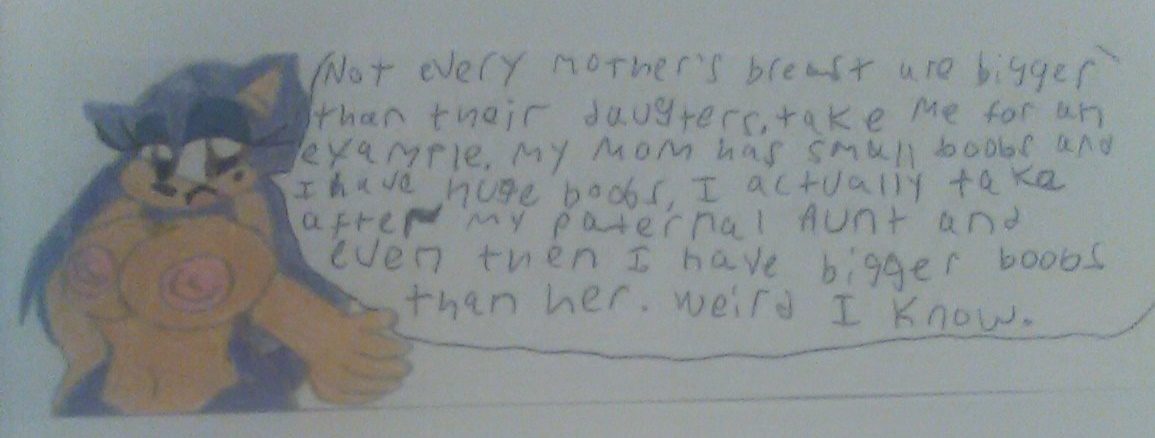 Not every mother's breast are bigger
than their daughters, take me for an
example. my mom has small boobs and
I have huge boobs, I actually take
after my paternal Aunt and
even then I have bigger boobs
than her. weird I know.